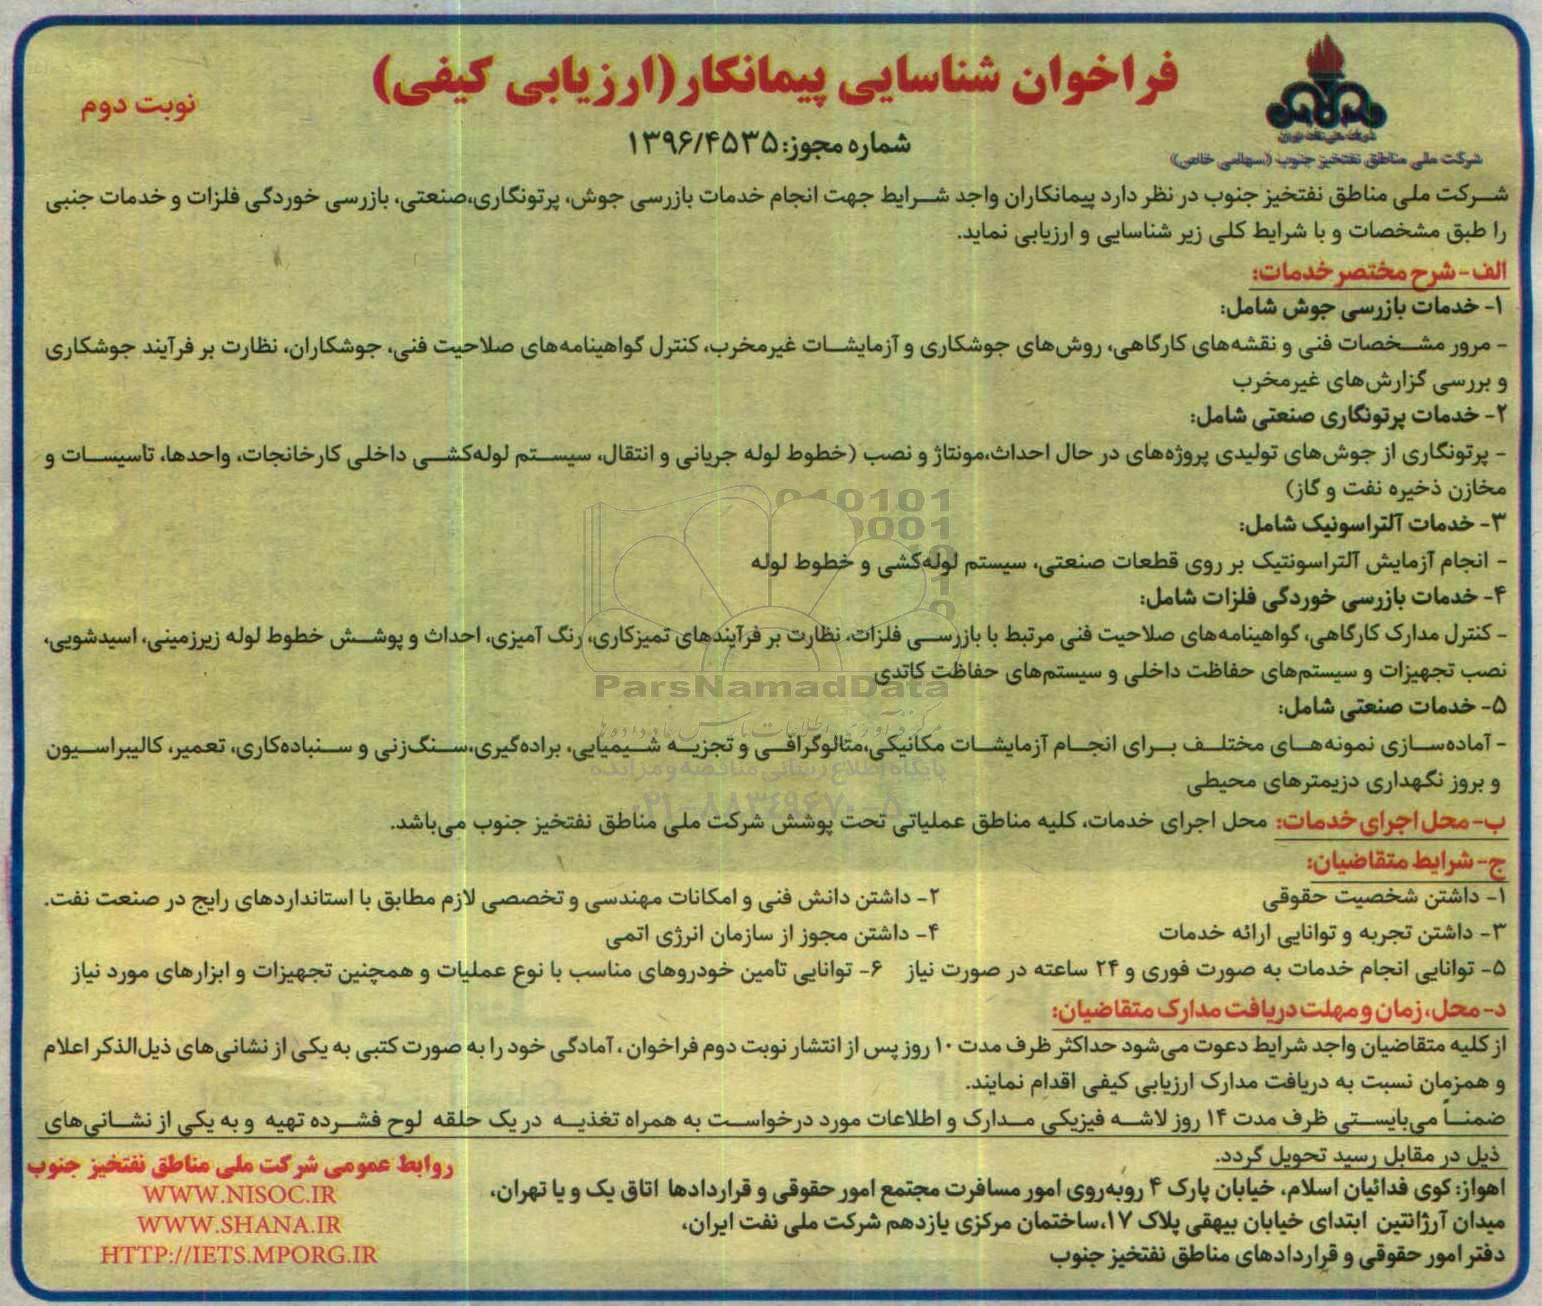 فراخوان شناسایی پیمانکار(ارزیابی کیفی)
نوبت دوم
شماره مجوز:۱۳۹۶/۴۵۳۵
شرکت ملی نفت ایران
شرکت ملی مناطق نفتخیز جنوب (سهامی خاص)
شرکت ملی مناطق نفتخیز جنوب در نظر دارد پیمانکاران واجد شرایط جهت انجام خدمات بازرسی جوش، پرتونگاری،صنعتی، بازرسی خوردگی فلزات و خدمات جنبی
را طبق مشخصات و با شرایط کلی زیر شناسایی و ارزیابی نماید.
الف- شرح مختصر خدمات:
۱- خدمات بازرسی جوش شامل:
- مرور مشخصات فنی و نقشه‌های کارگاهی، روش‌های جوشکاری و آزمایشات غیرمخرب، کنترل گواهینامه‌های صلاحیت فنی، جوشکاران، نظارت بر فرآیند جوشکاری
و بررسی گزارش‌های غیرمخرب
۲- خدمات پرتونگاری صنعتی شامل:
- پرتونگاری از جوش‌های تولیدی پروژه‌های در حال احداث،مونتاژ و نصب (خطوط لوله جریانی و انتقال، سیستم لوله‌کشی داخلی کارخانجات، واحدها، تاسیسات و
مخازن ذخیره نفت و گاز)
۳- خدمات آلتراسونیک شامل:
- انجام آزمایش آلتراسونتیک بر روی قطعات صنعتی، سیستم لوله‌کشی و خطوط لوله
۴- خدمات بازرسی خوردگی فلزات شامل:
- کنترل مدارک کارگاهی، گواهینامه‌های صلاحیت فنی مرتبط با بازرسی فلزات، نظارت بر فرآیندهای تمیزکاری، رنگ آمیزی، احداث و پوشش خطوط لوله زیرزمینی، اسیدشویی،
نصب تجهیزات و سیستم‌های حفاظت داخلی و سیستم‌های حفاظت کاتدی
۵- خدمات صنعتی شامل:
- آماده‌سازی نمونه‌های مختلف برای انجام آزمایشات مکانیکی،متالوگرافی و تجزیه شیمیایی، براده‌گیری،سنگ‌زنی و سنباده‌کاری، تعمیر، کالیبراسیون
و بروز نگهداری دزیمترهای محیطی
ب- محل اجرای خدمات: محل اجرای خدمات، کلیه مناطق عملیاتی تحت پوشش شرکت ملی مناطق نفتخیز جنوب می‌باشد.
ج- شرایط متقاضیان:
۱- داشتن شخصیت حقوقی ۲- داشتن دانش فنی و امکانات مهندسی و تخصصی لازم مطابق با استانداردهای رایج در صنعت نفت.
۳- داشتن تجربه و توانایی ارائه خدمات ۴- داشتن مجوز از سازمان انرژی اتمی
۵- توانایی انجام خدمات به صورت فوری و ۲۴ ساعته در صورت نیاز ۶- توانایی تأمین خودروهای مناسب با نوع عملیات و همچنین تجهیزات و ابزارهای مورد نیاز
د- محل، زمان و مهلت دریافت مدارک متقاضیان:
از کلیه متقاضیان واجد شرایط دعوت می‌شود حداکثر ظرف مدت ۱۰ روز پس از انتشار نوبت دوم فراخوان ، آمادگی خود را به صورت کتبی به یکی از نشانی‌های ذیل‌الذکر اعلام
و همزمان نسبت به دریافت مدارک ارزیابی کیفی اقدام نمایند.
ضمناً می‌بایستی ظرف مدت ۱۴ روز لاشه فیزیکی مدارک و اطلاعات مورد درخواست به همراه تغذیه در یک حلقه لوح فشرده تهیه و به یکی از نشانی‌های
ذیل در مقابل رسید تحویل گردد.
اهواز: کوی فدائیان اسلام، خیابان پارک ۴ روبه‌روی امور مسافرت مجتمع امور حقوقی و قراردادها اتاق یک و یا تهران،
میدان آرژانتین ابتدای خیابان بیهقی پلاک ۱۷،ساختمان مرکزی یازدهم شرکت ملی نفت ایران،
دفتر امور حقوقی و قراردادهای مناطق نفتخیز جنوب
روابط عمومی شرکت ملی مناطق نفتخیز جنوب
WWW.NISOC.IR
WWW.SHANA.IR
HTTP://IETS.MPORG.IR
ParsNamadData
پایگاه اطلاع رسانی مناقصه و مزایده
۰۲۱-۸۸۳۴۹۶۷۰-۵